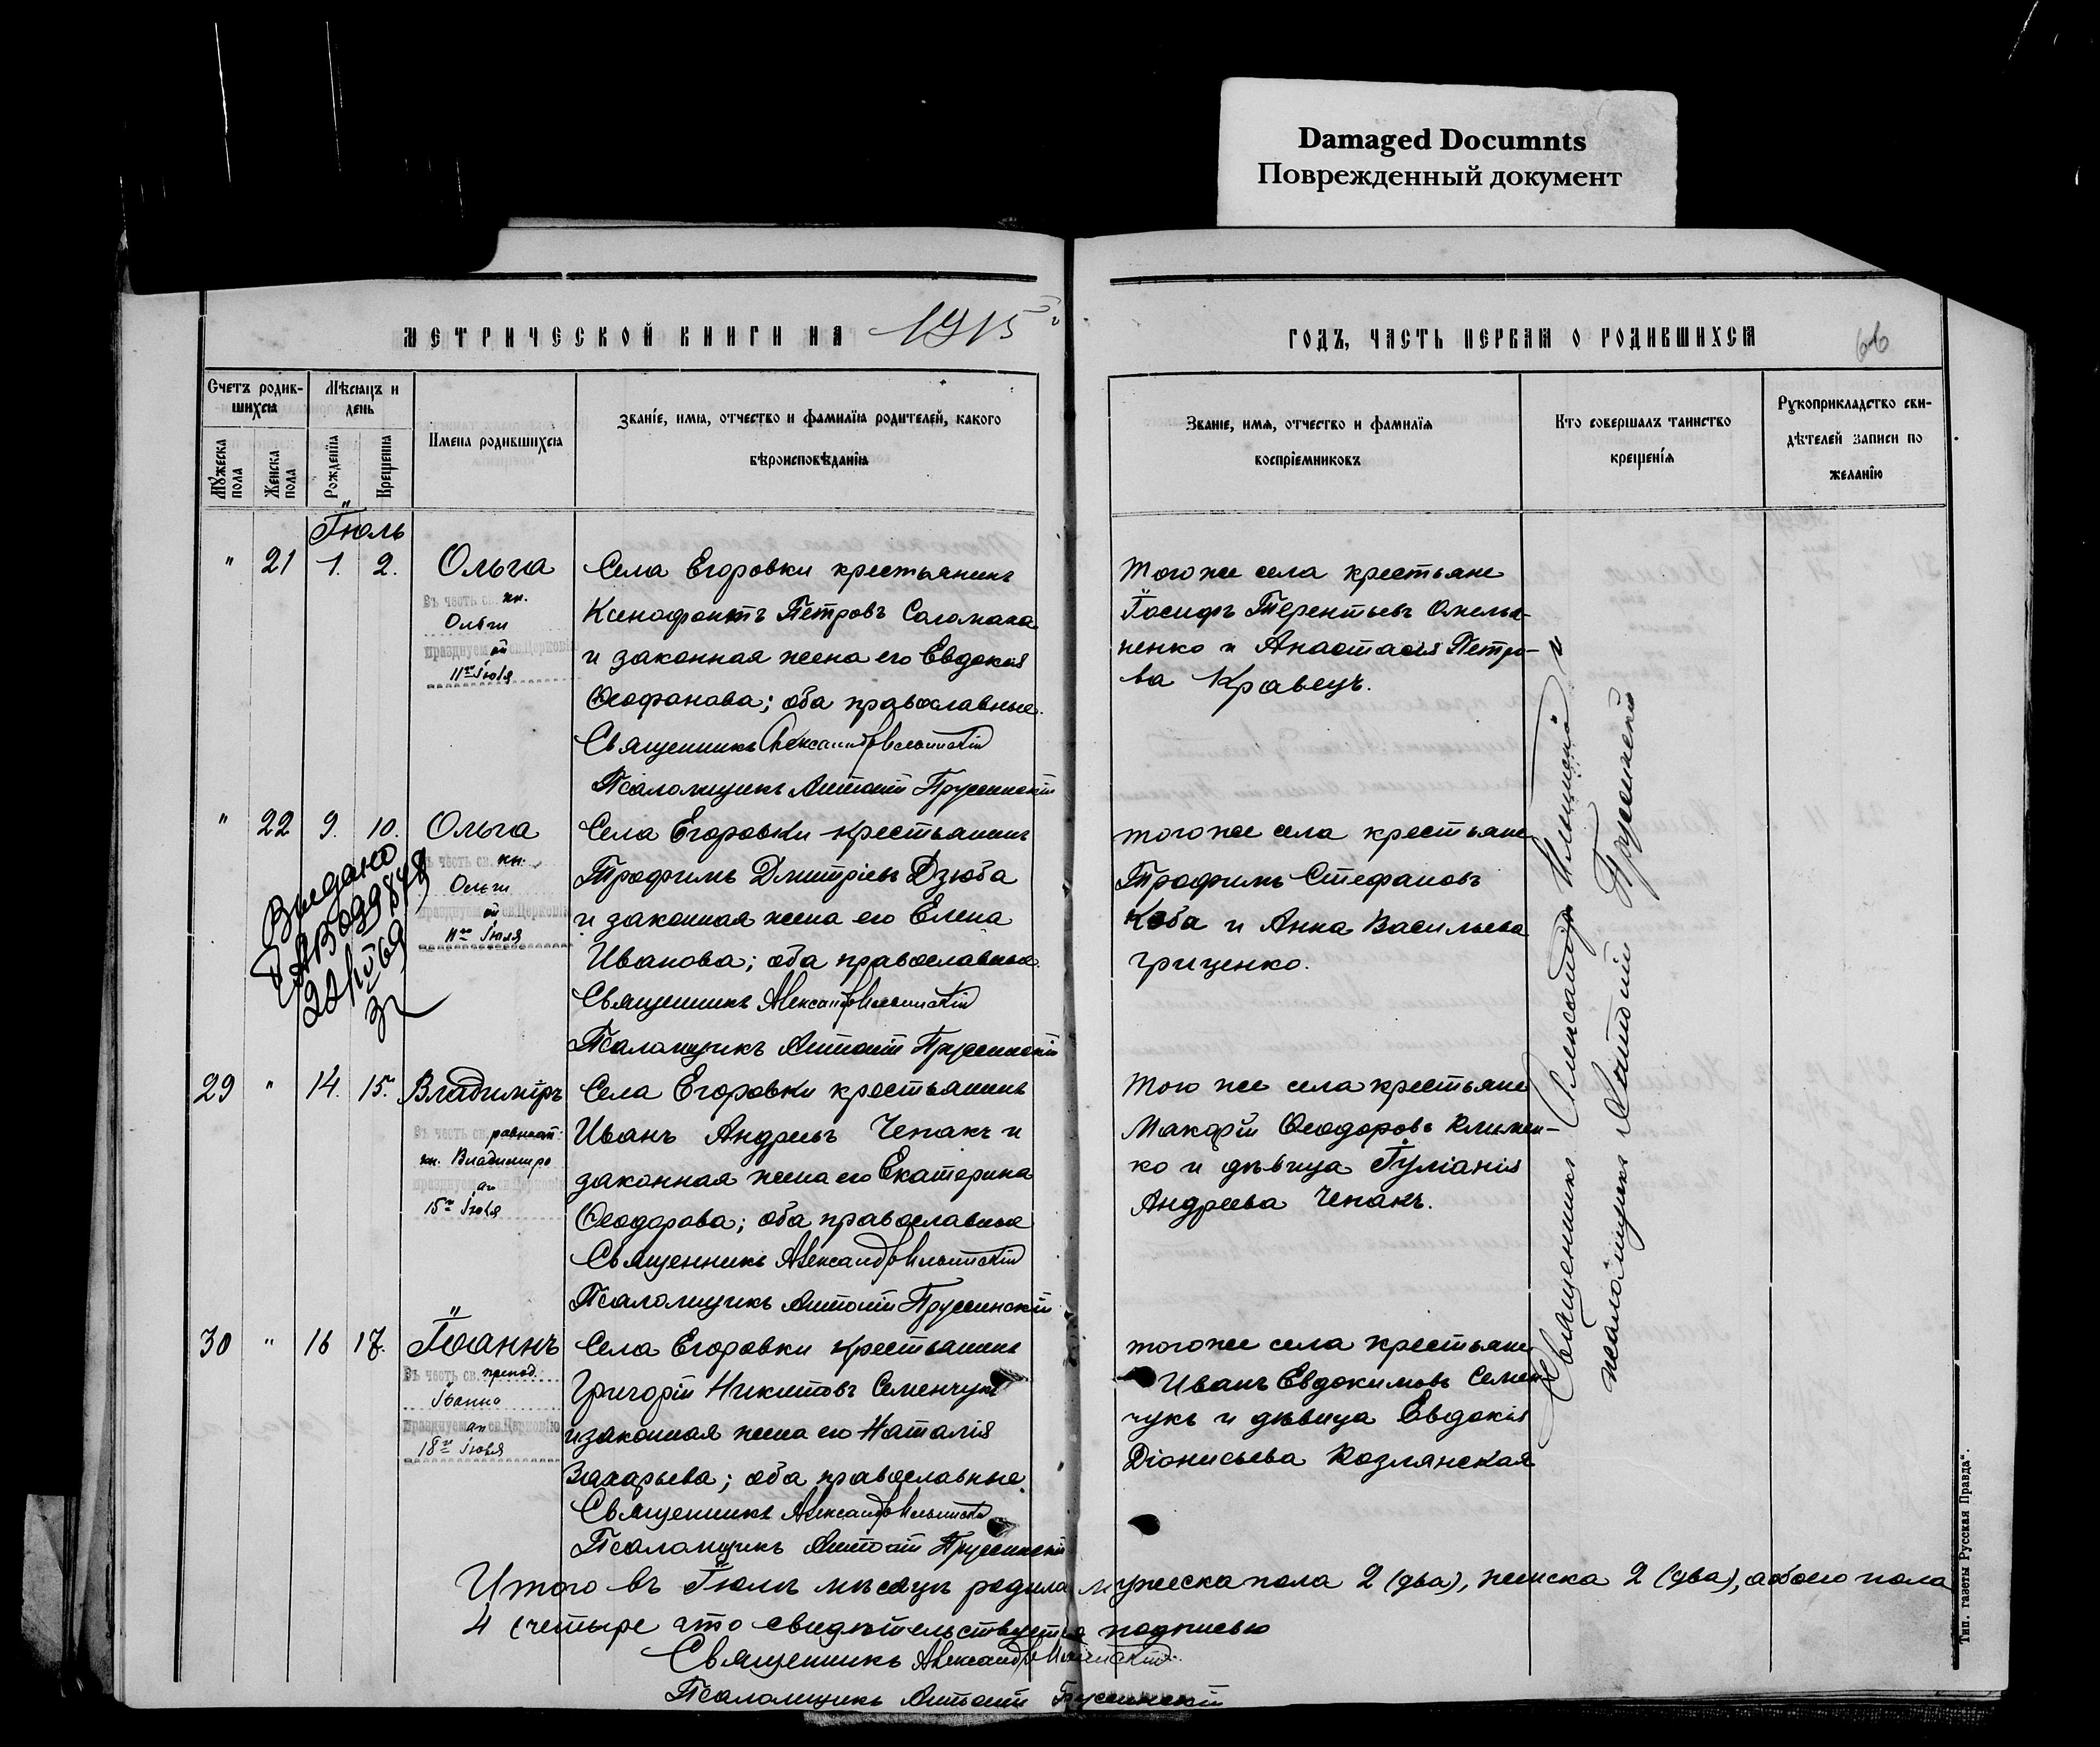 Damaged Documnts
Поврежденный документ
МЕТРИЧЕСКОЙ КНИГИ НА 1915 г
ГОДЪ, ЧАСТЬ ПЕРВАЯ О РОДИВШИХСЯ
66
Счетъ родив-
шихся
Мѣсяцъ и
день
Имена родившихся
Званіе, имя, отчество и фамилія родителей, какого
вѣроисповѣданія
Мужеска пола
Женска пола
Рожденія
Крещенія
Званіе, имя, отчество и фамилія
воспріемниковъ
Кто совершалъ таинство
крещенія
Рукоприкладство сви-
дѣтелей записи по
желанію
Іюль
" 21 1. 2. Ольга
Въ честь св. кн.
Ольги
празднуем ой св. Церковію
11го Іюля
Села Егоровки крестьянинъ
Ксенофонтъ Петровъ Саломаха
и законная жена его Евдокія
Ѳеофанова; оба православные.
Священникъ Александръ Ильинскій
Псаломщикъ Антоній Прусинскій
Того же села крестьяне
Іосифъ Терентьевъ Омелья-
ненко и Анастасія Петро-
ва Кравецъ.
" 22 9. 10. Ольга
Въ честь св. кн.
Ольги
празднуем ой св. Церковію
11го Іюля
Выдано
Села Егоровки крестьянинъ
Трофимъ Дмитріевъ Дзюба
и законная жена его Елена
Иванова; оба православные.
Священникъ Александръ Ильинскій
Псаломщикъ Антоній Прусинскій
того же села крестьяне
Трофимъ Стефановъ
Коба и Анна Васильева
Гриценко.
29 " 14. 15. Владиміръ
Въ честь св. равноап.
кн. Владиміра
празднуем аго св. Церковію
15го Іюля
Села Егоровки крестьянинъ
Иванъ Андреевъ Чепакъ и
законная жена его Екатерина
Ѳеодорова; оба православные
Священникъ Александръ Ильинскій
Псаломщикъ Антоній Прусинскій
Того же села крестьяне
Макарій Ѳеодоровъ Климен-
ко и дѣвица Іуліанія
Андреева Чепакъ.
30 " 16 17. Іоаннъ
Въ честь св. препод.
Іоанна
празднуем аго св. Церковію
18го Іюля
Села Егоровки крестьянинъ
Григорій Никитовъ Семенчукъ
и законная жена его Наталія
Захарьева; оба православные.
Священникъ Александръ Ильинскій
Псаломщикъ Антоній Прусинскій
того же села крестьяне
Иванъ Евдокимовъ Семен-
чукъ и дѣвица Евдокія
Діонисьева Козлянская
Священникъ Александръ Ильинскій и
псаломщикъ Антоній Прусинскій
Итого въ Іюлѣ мѣсяцѣ родила мужеска пола 2 (два), женска 2 (два), обоего пола
4 (четыре что свидѣтельствуется подписью
Священникъ Александръ Ильинскій
Псаломщикъ Антоній Прусинскій
Тип. газеты Русская Правда".